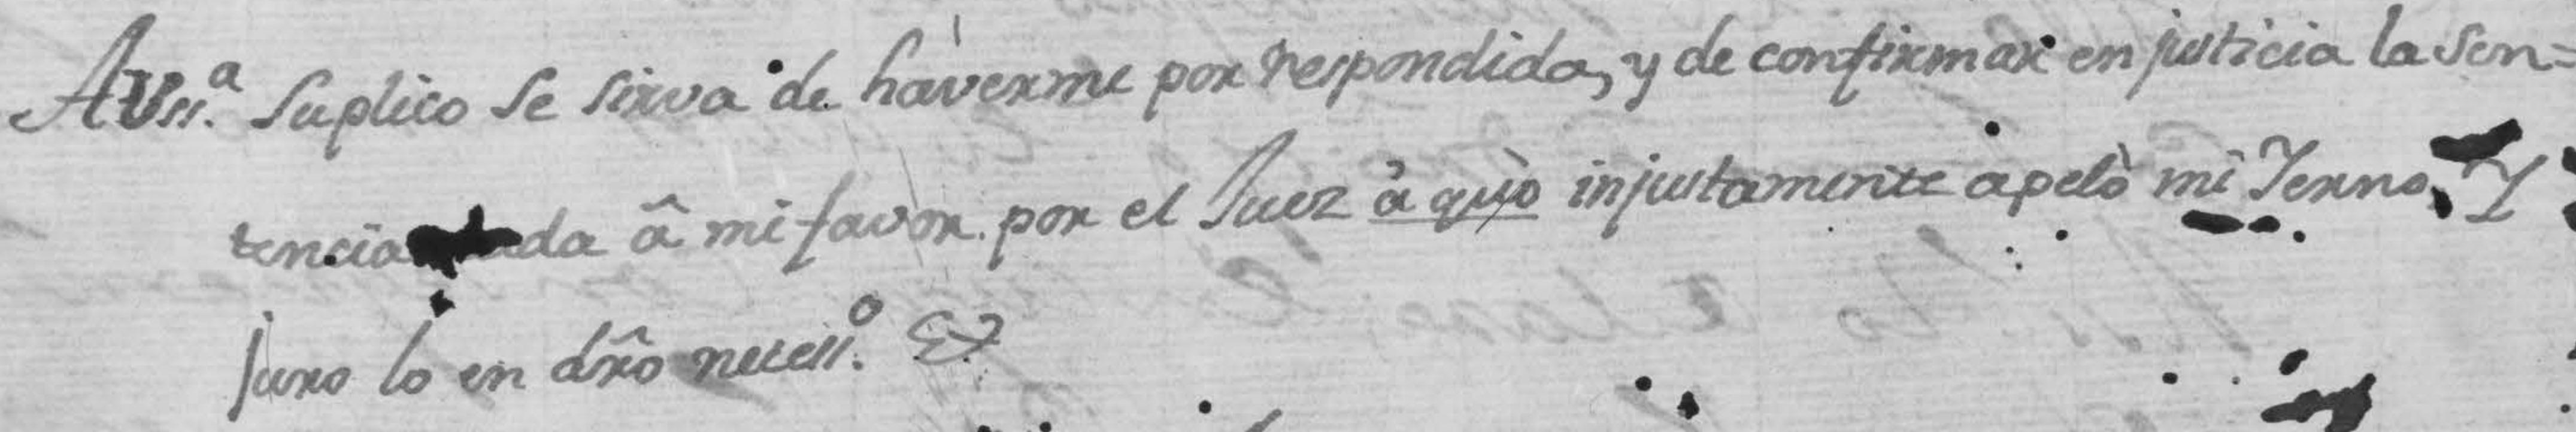 AVss.ª Suplico se sirva de haverme por respondida, y de confirmar en justicia la sen=
tencia da â mi favor por el Juez à quò injustamente apelò mi Yerno, Y
Juro lo en dr̃o necess.º &